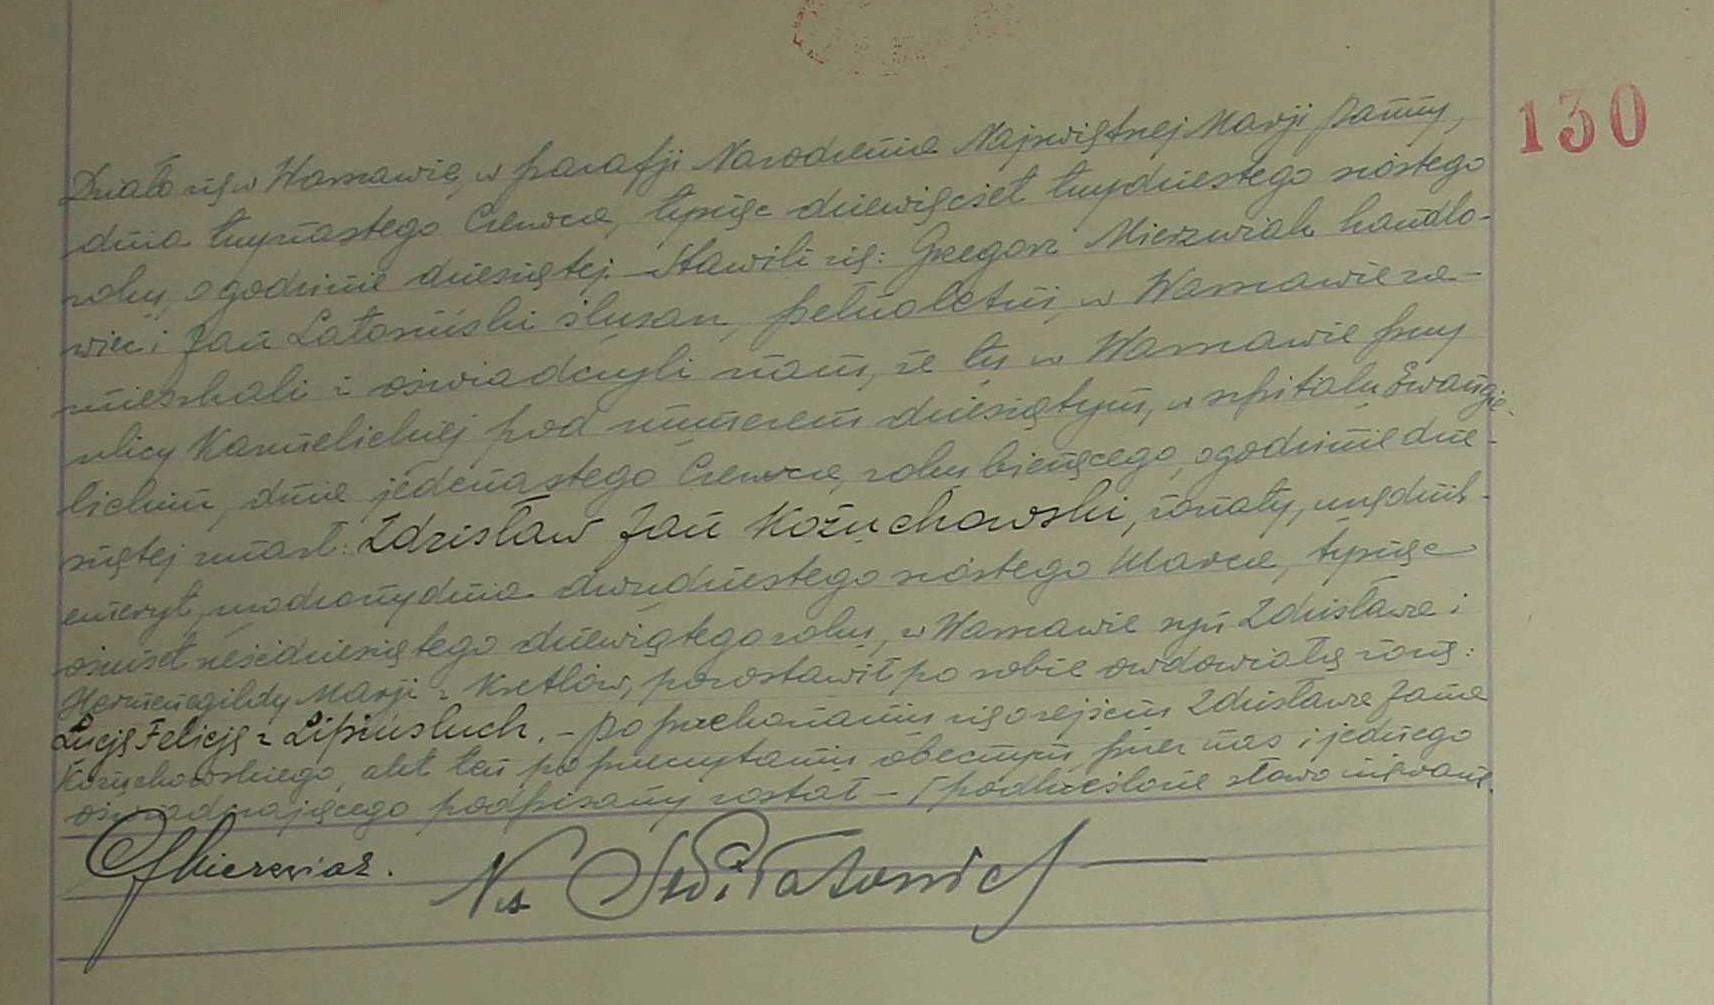 130
Działo się w Warszawie, w parafji Narodzenia Najświętszej Marji Panny,
dnia trzynastego Czerwca, tysiąc dziewięćset trzydziestego szóstego
roku, o godzinie dziesiątej. Stawili się: Grzegorz Mierzwiak handlo-
wiec i Jan Latosiński ślusarz, pełnoletni, w Warszawie za-
mieszkali i oświadczyli nam, że tu w Warszawie przy
ulicy Karmelickiej pod numerem dziesiątym, w szpitalu Ewangie-
lickim, dnia jedenastego Czerwca, roku bieżącego, o godzinie dzie-
siątej zmarł: Zdzisław Jan Kożuchowski, żonaty, urzędnik-
emeryt, urodzony dnia dwudziestego szóstego Marca, tysiąc
ośmset sześćdziesiątego dziewiątego roku, w Warszawie syn Zdzisława i
Hermenegildy Marji z Kretlów, pozostawił po sobie owdowiałą żonę:
Łucję Felicję z Lipińskich. - Po przekonaniu się o zejściu Zdzisława Jana
Kożuchowskiego, akt ten po przeczytaniu obecnym, przez nas i jednego
oświadczającego podpisany został - 1 podkreślone słowo nieważne.
Mierzwiak.